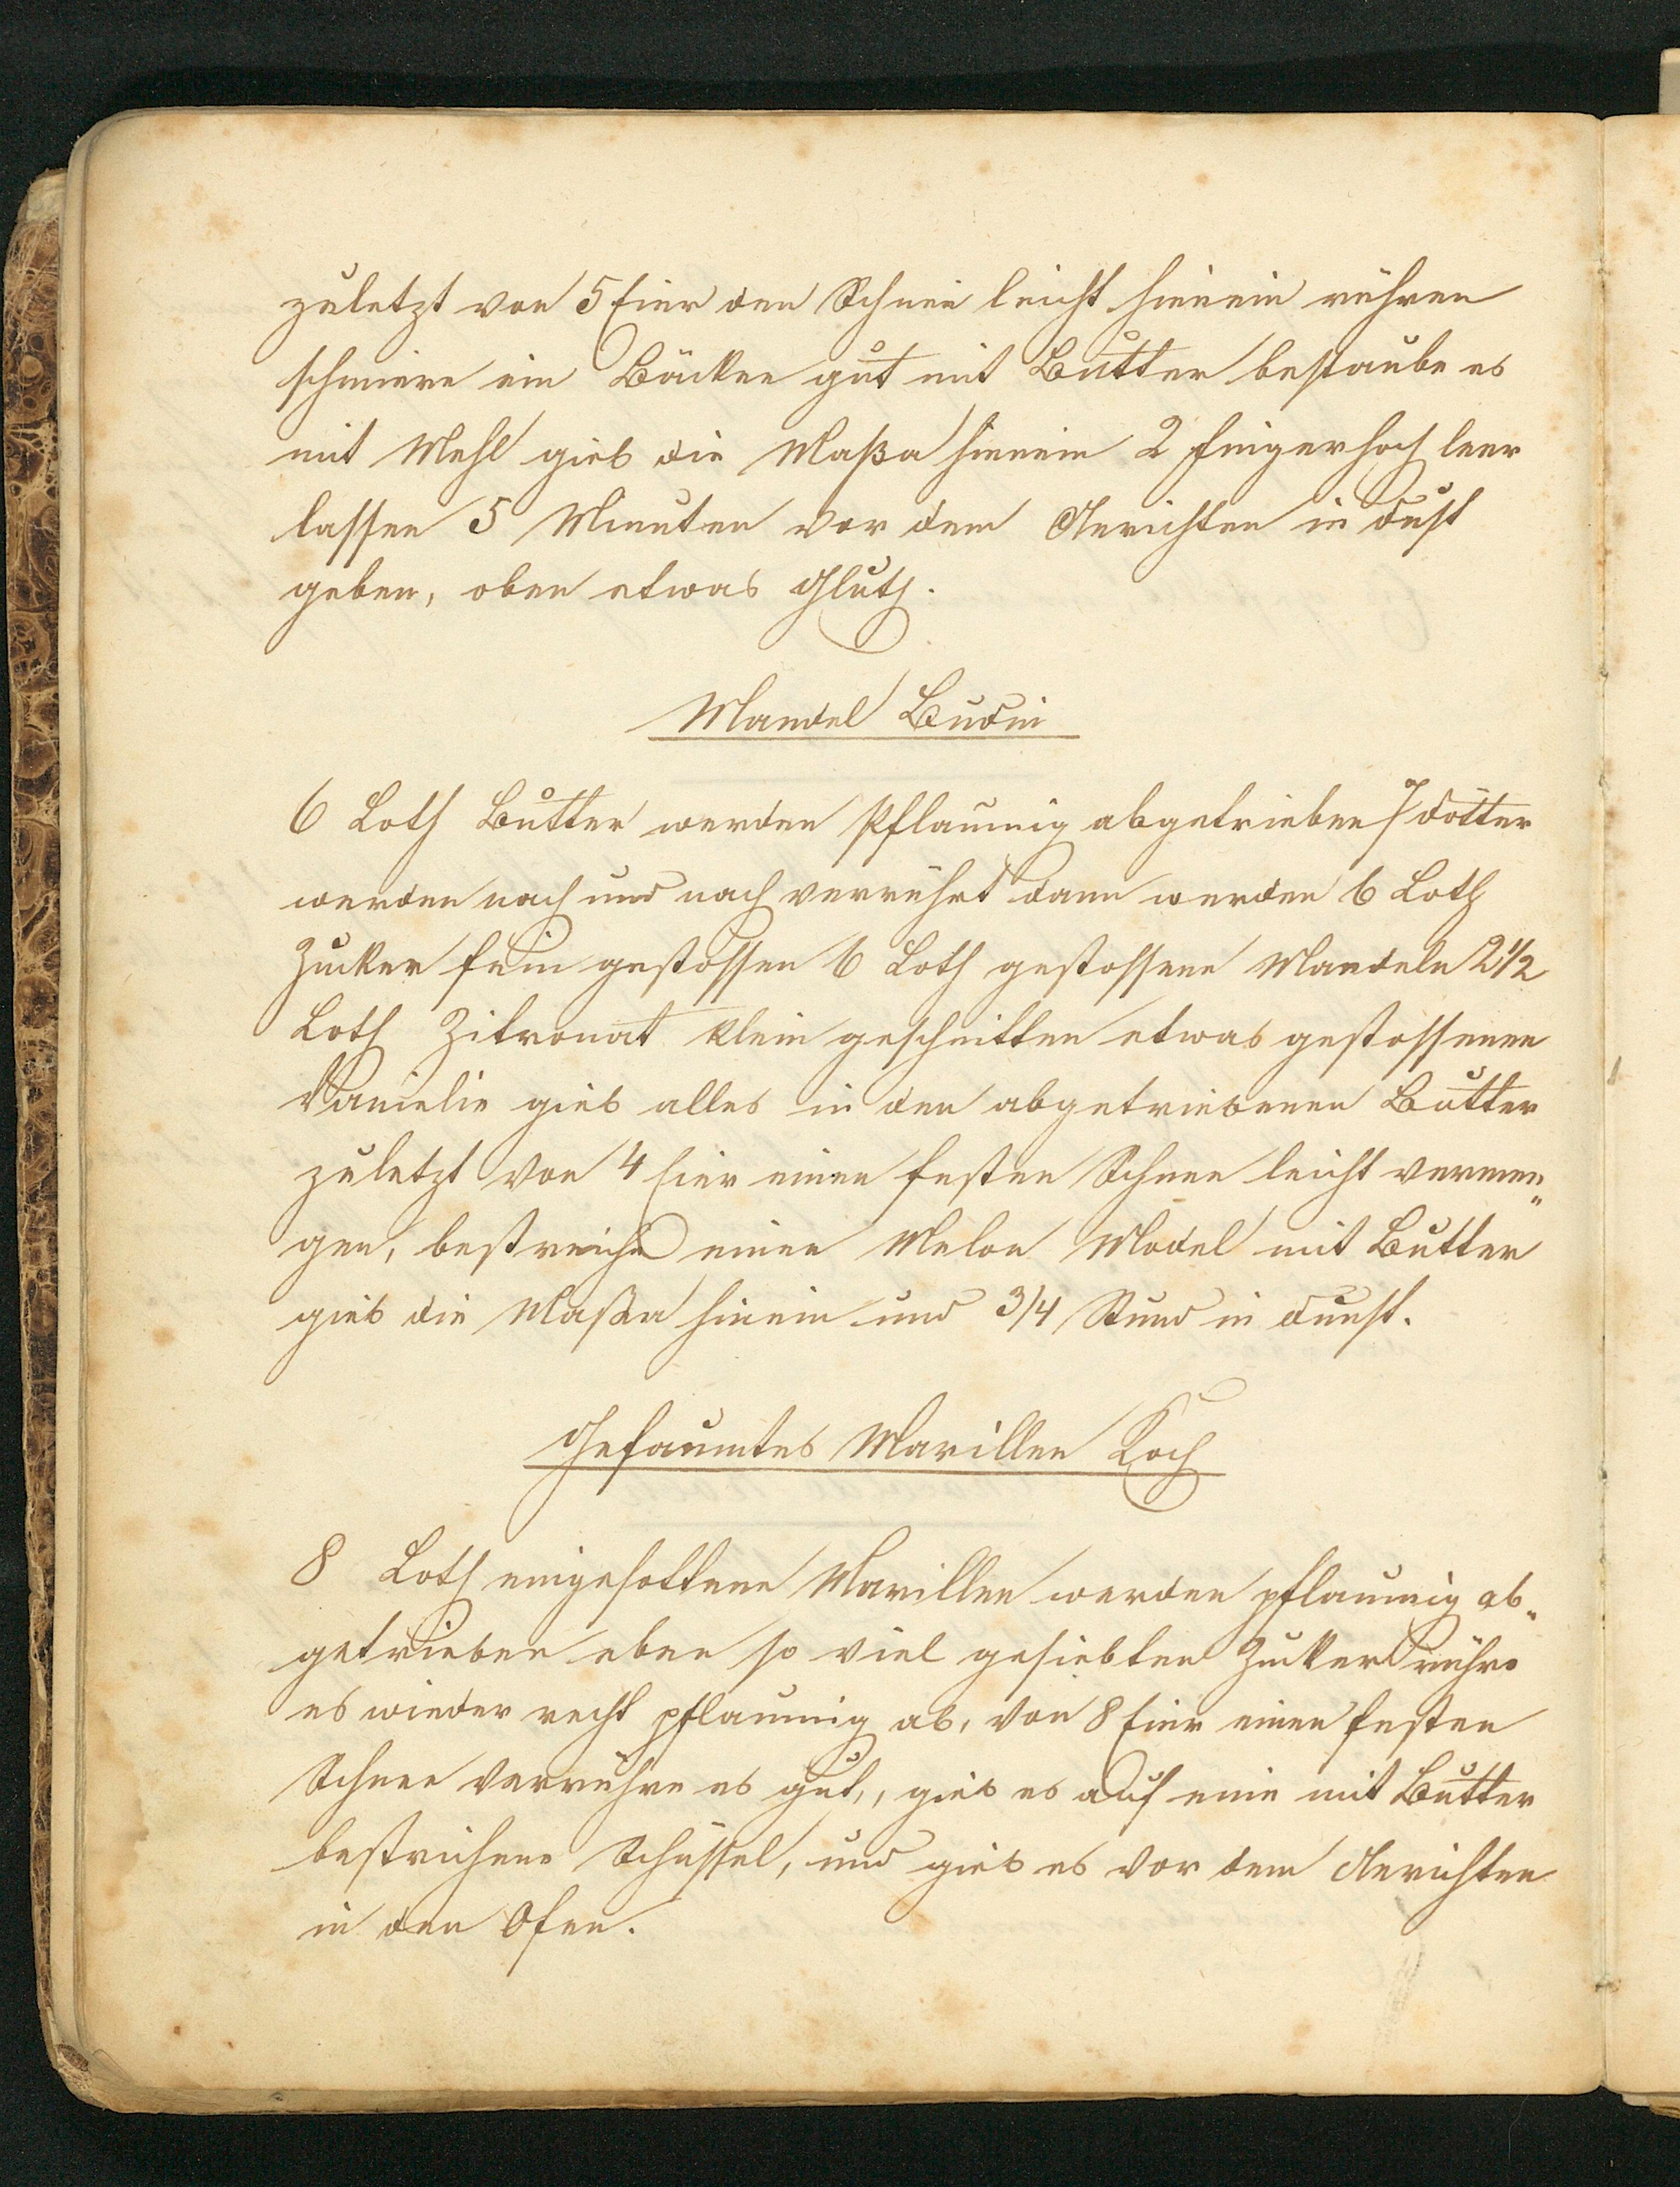 zuletzt von 5 Eier den Schnee leicht hinein rühren
schmiere ein Böcken gut mit Butter bestaube es
mit Mehl gieb die Maßa hinein 2 fingerhoch leer
lassen 5 Minuten vor dem Anrichten in Dust
geben, oben etwas Gluth.
Mandel Budin
6 Loth Butter werden Pflaumig abgetrieben 7 Dotter
werden nach und nach verrührt dann werden 6 Loth
Zucker fein gestossen 6 Loth gestossene Mandeln 2 1/2
Loth Zitronat klein geschnitten etwas gestossenen
Vanielie gieb alles in den abgetriebenen Butter
zuletzt von 4 Eier einen festen Schnee leicht vermen„
gen, bestreiche einen Melon Model mit Butter
gieb die Maßa hinein und 3/4 Stund in Dunst.
Gefaumtes Marillen Koch
8 Loth eingesottene Marillen werden pflaumig ab„
getrieben eben so viel gesiebten Zucker rühre
es wieder recht pflaumig ab, von 8 Eier einen festen
Schnee verrühre es gut,, gieb es auf eine mit Butter
bestrichene Schüssel, und gieb es vor dem Anrichten
in den Ofen.